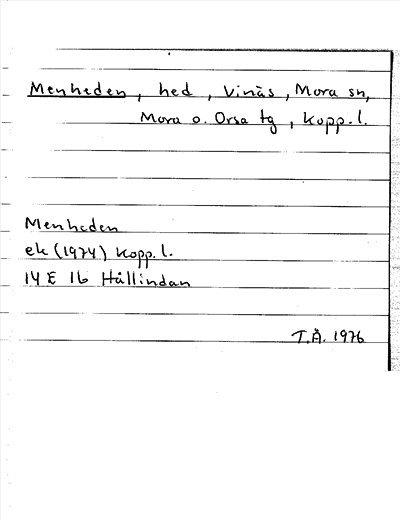 Menheden, hed, Vinäs, Mora sn,
Mora o. Orsa tg, Kopp. l.
Menheden
ek (1974) Kopp. l.
14 E 1b Hållindan
T.Å. 1976